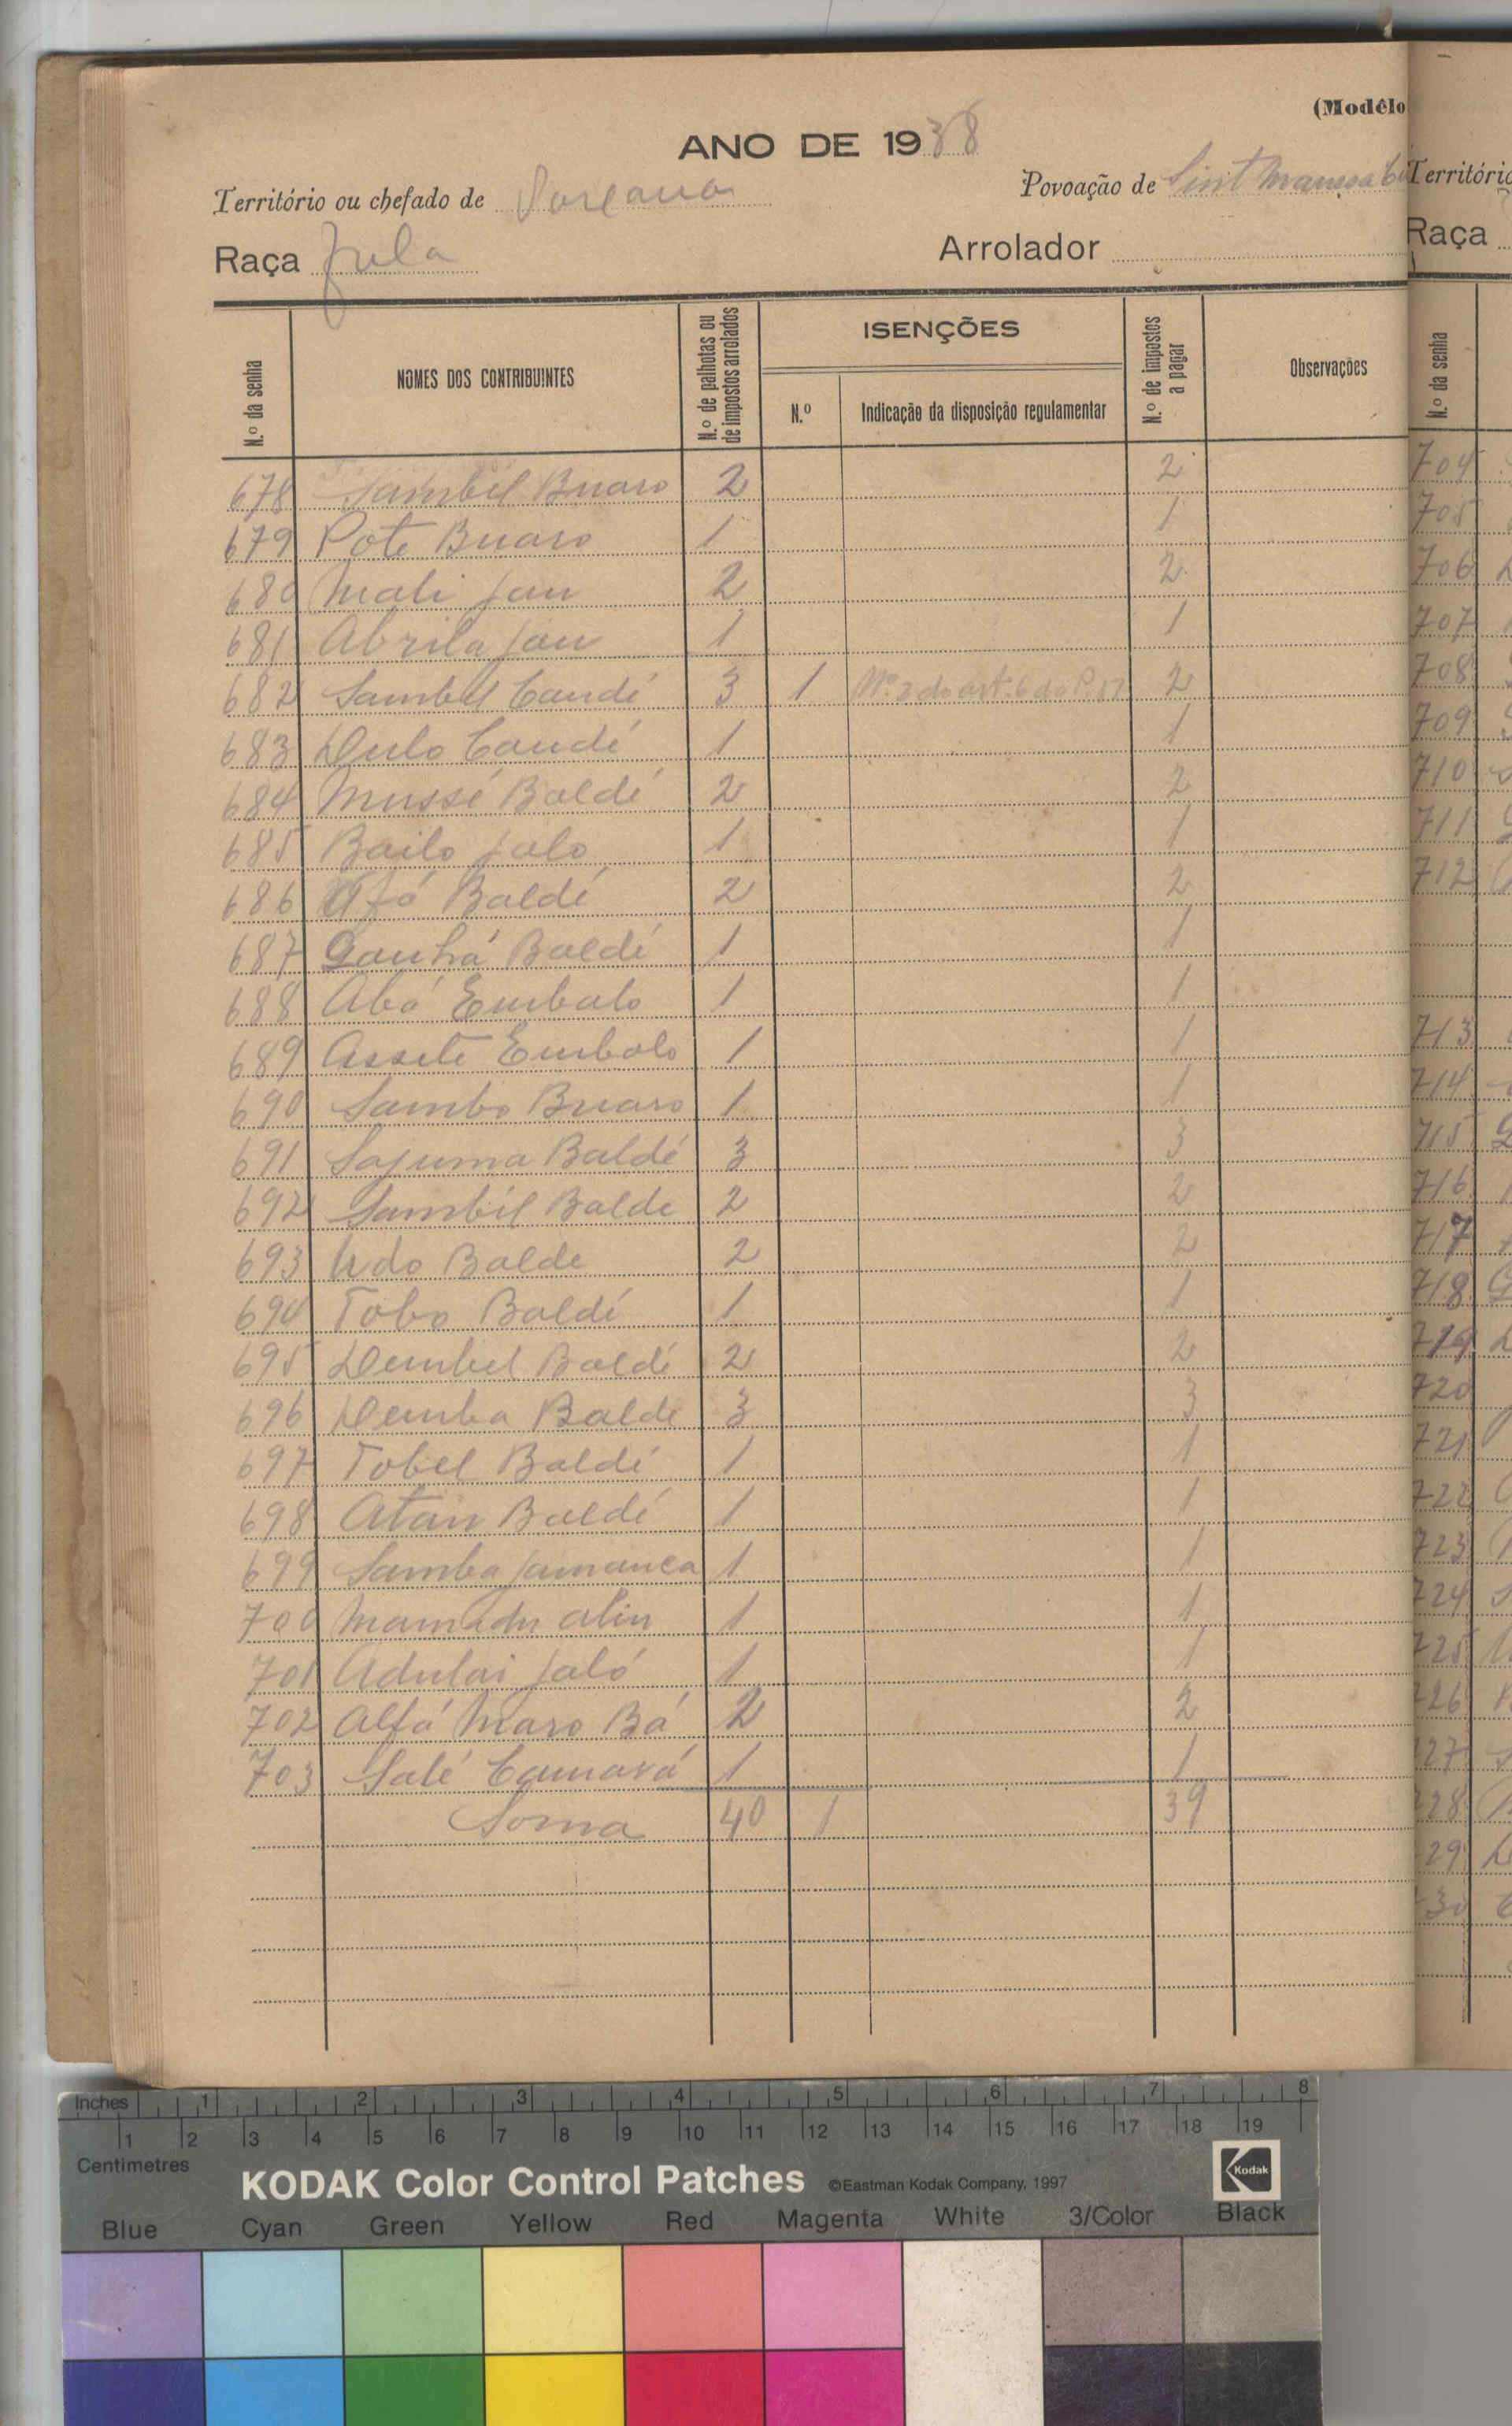 (Modêlo
ANO DE 1938
Território ou chefado de
Povoação de Sint
Raça Fula
Arrolador
N.º da senha
NOMES DOS CONTRIBUINTES
N.º de palhotas ou de impostos arrolados
ISENÇÕES
N.º
Indicação da disposição regulamentar
N.º de impostos a pagar
Observações
678 Sambél Buaro 2 2
679 Pote Buaro 1 1
680 Mali Jau 2 2
681 Abrila Jau 1 1
682 Sambél Candé 3 1 Nº 2 do art. 6 do 2
683 Dulo Candé 1 1
684 Mussé Baldé 2 2
685 Bailo Jalo 1 1
686 Afó Baldé 2 2
687 Ganhá Baldé 1 1
688 Abá Embalo 1 1
689 Assete Embalo 1 1
690 Sambo Buaro 1 1
691 Sajuma Baldé 3 3
692 Sambél Balde 2 2
693 Udo Balde 2 2
694 Tobo Baldé 1 1
695 Dembel Baldé 2 2
696 Demba Balde 3 3
697 Tobel Baldé 1 1
698 Atan Baldé 1 1
699 Samba Jamanca 1 1
700 Mamadu Aliu 1 1
701 Adulai Jaló 1 1
702 Alfá Maro Bá 2 2
703 Salé Camará 1 1
Soma 40 1 39
Território
Raça
N.º da senha
704
705
706
707
708
709
710
711
712
713
714
715
716
717
718
719
720
721
722
723
724
725
726
727
728
729
730
Inches 1 2 3 4 5 6 7 8
1 2 3 4 5 6 7 8 9 10 11 12 13 14 15 16 17 18 19
Centimetres
KODAK Color Control Patches ©Eastman Kodak Company, 1997 Kodak
Blue Cyan Green Yellow Red Magenta White 3/Color Black